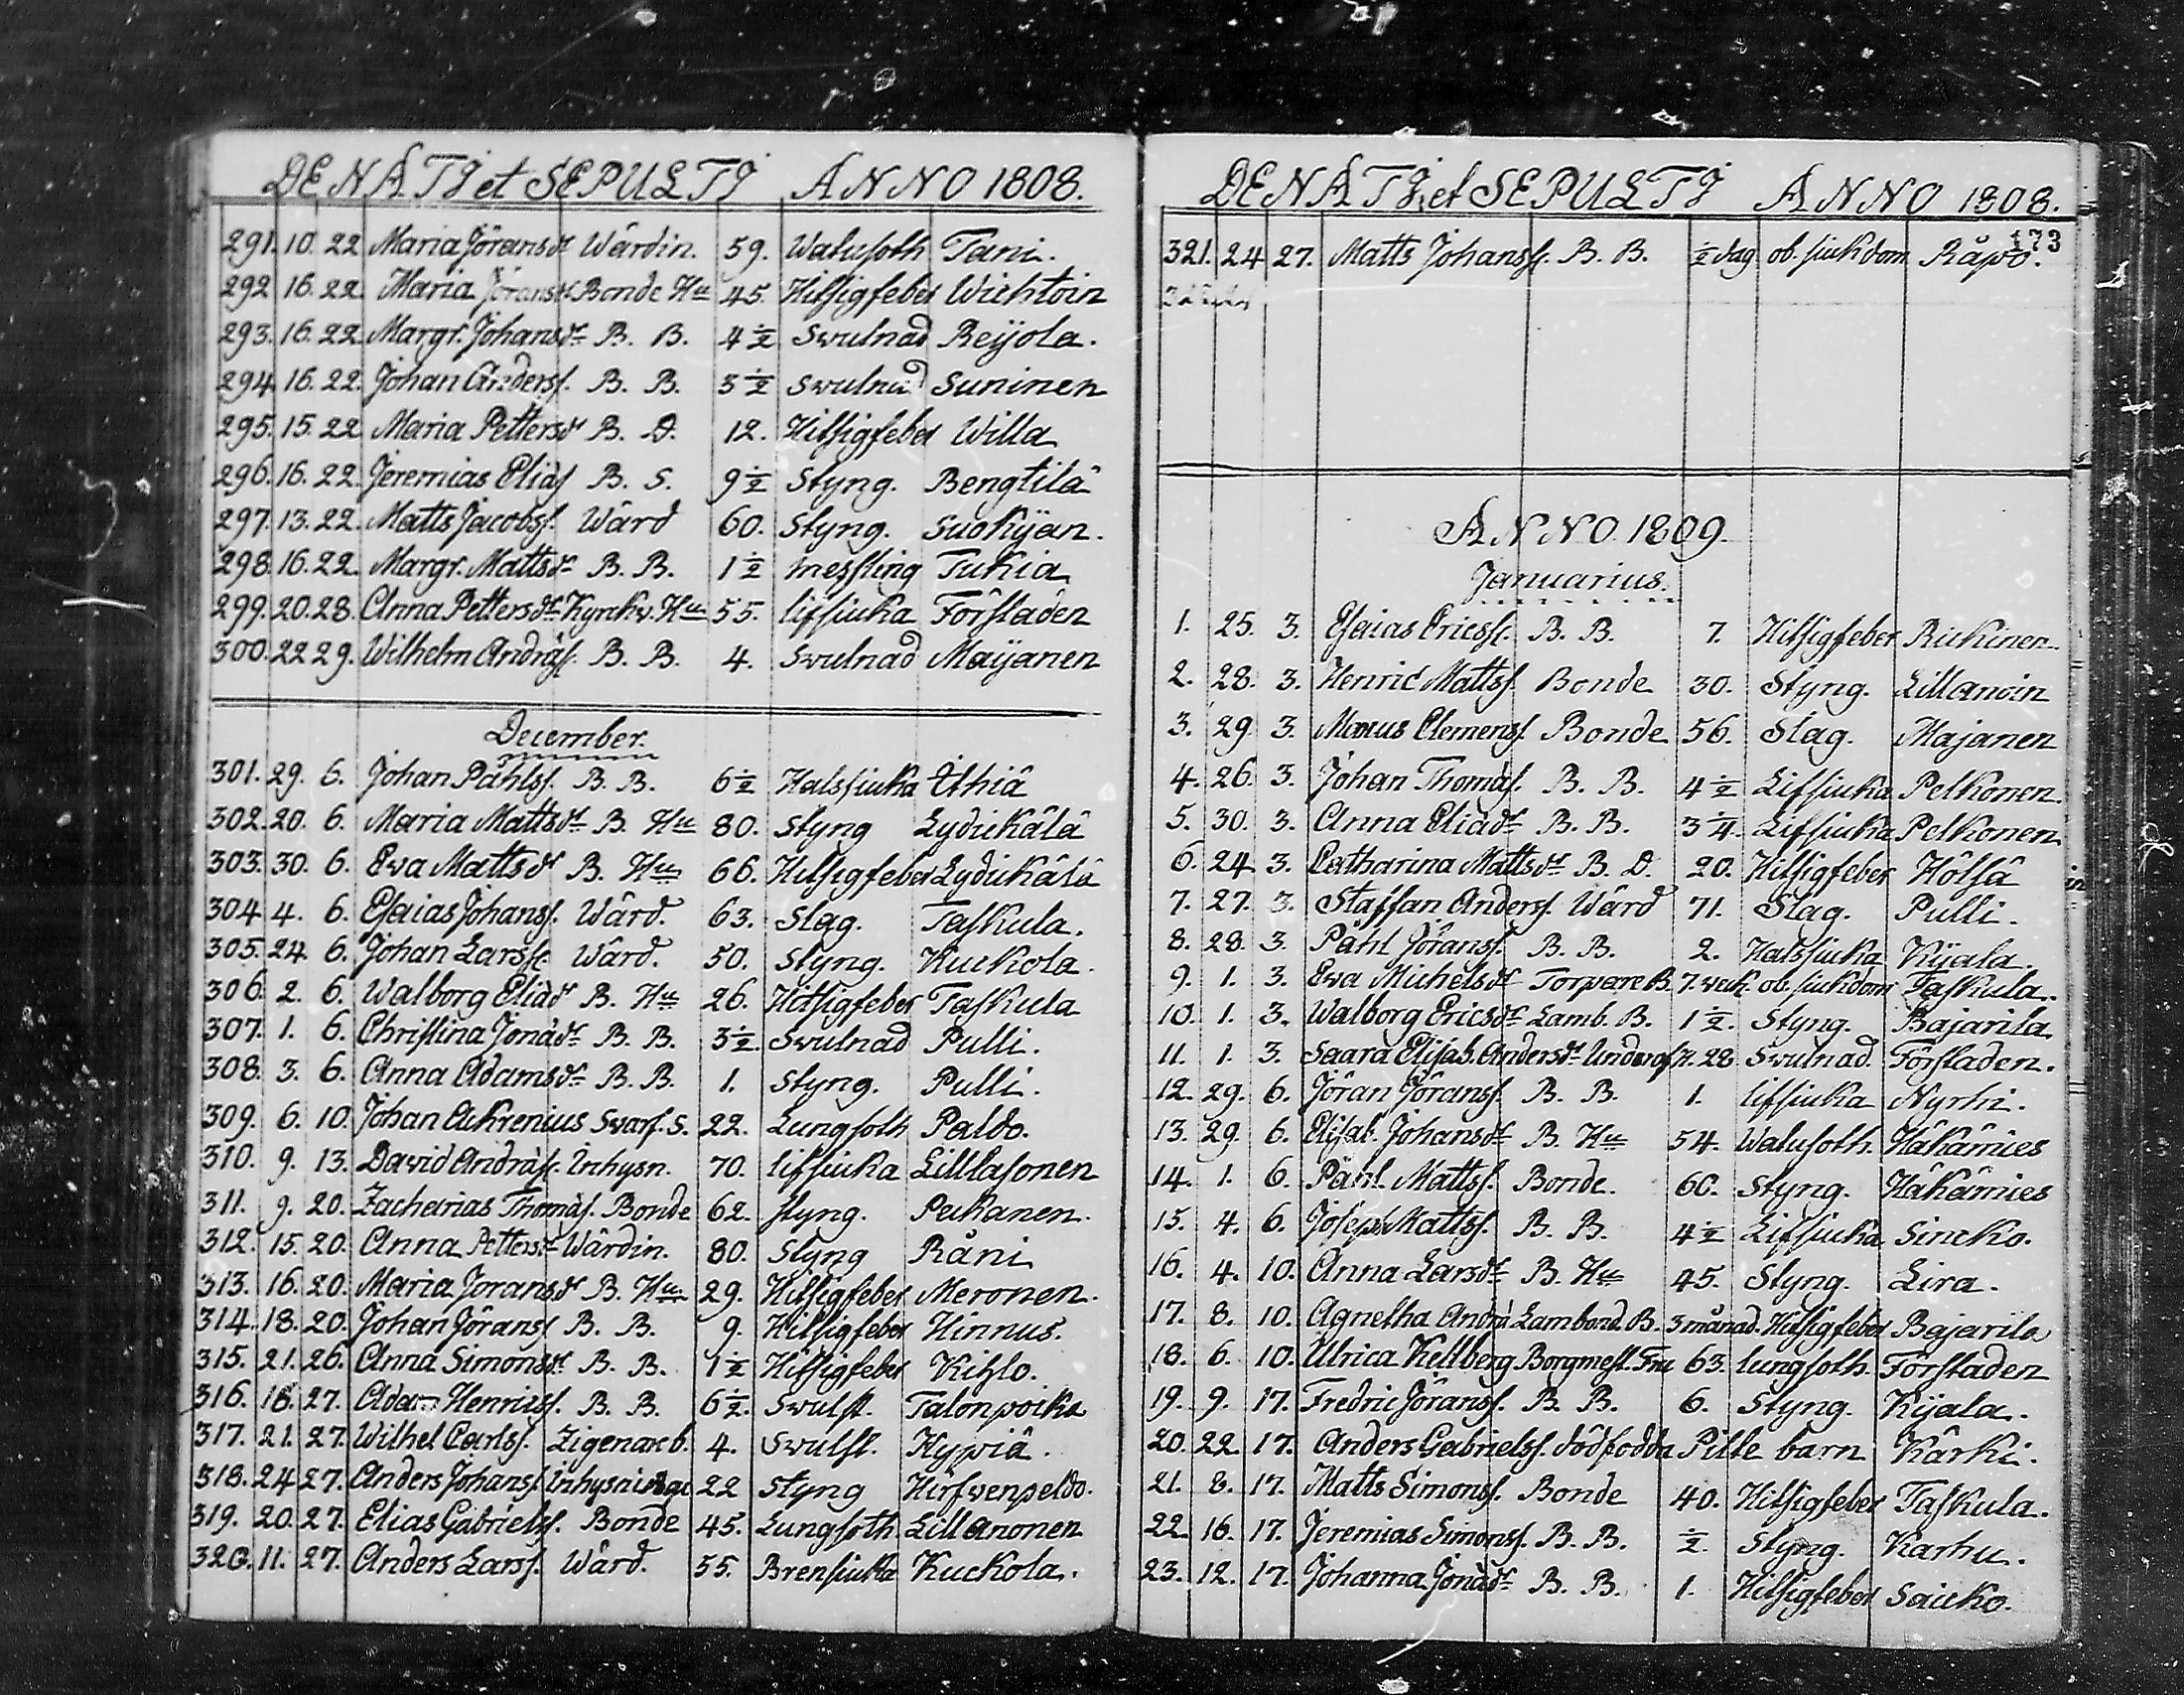 DENATI et SEPULTI ANNO 1808.
291. 10. 22 Maria Jöransdr Wärdin. 59. Watusoth Tani.
292 16. 22. Maria Jöransdr Bonde Hu 45. Hitsigfeber Wichtoin
293. 16. 22. Margr. Johansdr B. B. 4½ Swulnad Reijola.
294. 16. 22. Johan Anderss. B. B. 3½ Swulnad Suninen
295. 15. 22 Maria Pettersdr B. D. 12. Hitsigfeber Willa
296. 16. 22. Jeremias Elias B. S. 9½ Styng. Bengtilä
297. 13. 22. Matts Jacobss. Wärd 60. Styng. Suokijan.
298. 16. 22. Margr. Mattsdr B. B. 1½ messling Tukia
299. 20. 28. Anna Pettersdr Kyrckv. Hu 55. lifsiuka Förstaden
300. 22 29. Wilhelm Andräs. B. B. 4. Swulnad Maijanen
December.
301. 29. 6. Johan Påhlss. B. B. 6½ Halssiuka Ithiä
302. 20. 6. Maria Mattsdr B. Hu 80. Styng Lydickälä
303. 30. 6. Ewa Mattsdr B. Hu 66. Hitsigfeber Lydickälä
304 4. 6. Esaias Johanss. Wärd. 63. Slag. Taskula.
305. 24. 6. Johan Larss. Wärd. 50. Styng. Kuckola.
306. 2. 6. Walborg Eliädr B. Hu 26. Hitsigfeber Taskula
307. 1. 6. Christina Jonädr B. B. 3½. Swulnad Pulli.
308. 3. 6. Anna Adamsdr B. B. 1. Styng. Pulli.
309. 6. 10. Johan Ackrenius Swarf. S. 22. Lungsoth Paldo.
310. 9. 13. David Andräs. Inhysn. 70. lifsiuka Lilllasonen
311. 9. 20. Zacharias Thomäs. Bonde 62. Styng. Peckanen.
312. 15. 20. Anna Pettersdr Wärdin. 80. Styng Räni
313. 16. 20. Maria Joransdr B. Hu 29. Hitsigfeber Meronen.
314. 18. 20. Johan Jörans B. B. 9. Hitsigfeber Hinnus.
315. 21. 26. Anna Simonsdr B. B. 1½ Hitsigfeber Kihlo.
316. 18. 27. Adam Henricss. B. B. 6½. Swulst. Talonpoika
317. 21. 27. Wilhel Carlss. Zigenare b. 4. Swulst. Hypiä.
318. 24 27. Anders Johanss. 22 Styng Hirfwenpeldo.
319. 20. 27. Elias Gabrielss. Bonde 45. Lungsoth Lillanonen
320. 11. 27. Anders Larss. Wärd. 55. Brensiuka Kuckola.
DENATI et SEPULTI ANNO 1808.
173
321. 24 27. Matts Johanss. B. B. ½ dag ob. siukdom Råpo.
ANNO 1809.
Januarius.
1. 25. 3. Esaias Ericss. B. B. 7. Hitsigfeber Rickinen.
2. 28. 3. Henric Mattss. Bonde 30. Styng. Lillanoin
3. 29 3. Marcus Clemenss. Bonde 56. Slag. Majanen
4. 26. 3. Johan Thomäs. B. B. 4½ Lifsiuka Pelkonen.
5. 30. 3. Anna Eliädr B. B. 3¼. Lifsiuka Pelkonen
6. 24 3. Catharina Mattsdr B. D. 20. Hitsigfeber Hölsä
7. 27. 3. Staffan Anderss. Wärd 71. Slag. Pulli.
8. 28. 3. Påhl Jöranss. B. B. 2. Halssiuka Kijala.
9. 1. 3. Ewa Michelsdr Torpare B. 7. veck. ob. siukdom Taskula.
10. 1. 3. Walborg Ericsdr Lamb. B. 1½. Styng. Bajarila
11. 1. 3. Saara Elisab. Andersdr 28 Swulnad. Förstaden.
12. 29. 6. Jöran Jöranss. B. B. 1. lifsiuka Nyrhi.
13. 29. 6. Elisab. Johansdr B. Hu 54. Watusoth. Häkämies
14. 1. 6. Påhl Mattss. Bonde. 60. Styng. Häkämies
15. 4. 6. Joseph Mattss. B. B. 4½ Lifsiuka Sincko.
16. 4. 10. Anna Larsdr B. Hu 45. Styng. Lira.
17. 8. 10. Agnetha Andrä Lambond. B. 3 månad. Hitsigfeber Bajarila
18. 6. 10. Ulrica Kellberg Borgmest. Fru 63. lungsoth. Förstaden
19. 9. 17. Fredric Jöranss. B. B. 6. Styng. Kijala.
20. 22 17. Anders Gabrielss. dödfodda Pille barn Kärki.
21. 8. 17. Matts Simonss. Bonde 40. Hitsigfeber Taskula.
22. 16. 17. Jeremias Simonss. B. B. ½. Styng. Karhu.
23. 12. 17. Johanna Jonädr B. B. 1. Hitsigfeber Saicko.